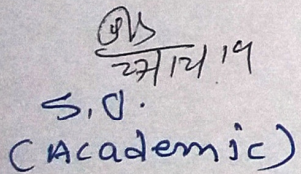 27/12/19
S.O.
(Academic)